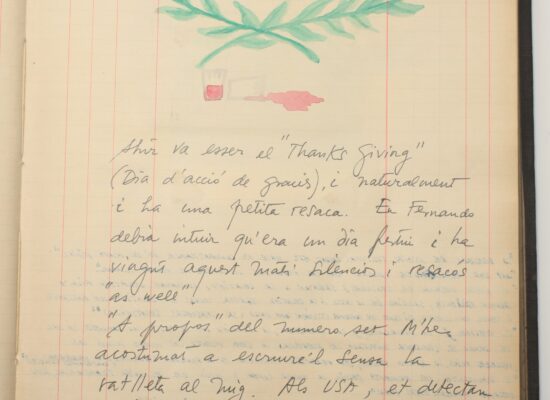 Ahir va esser el "Thanks Giving"
(Dia d'acció de gracis), i naturalment
i ha una petita resaca. En Fernando
debia intuir qu'era un dia festiu i ha
vingut aquest matí silencios i resacós
"as well"
"A propos" del numero set. M'he
acostumat a escriure'l sensa la
ratlleta al mig. Als USA, et detectan